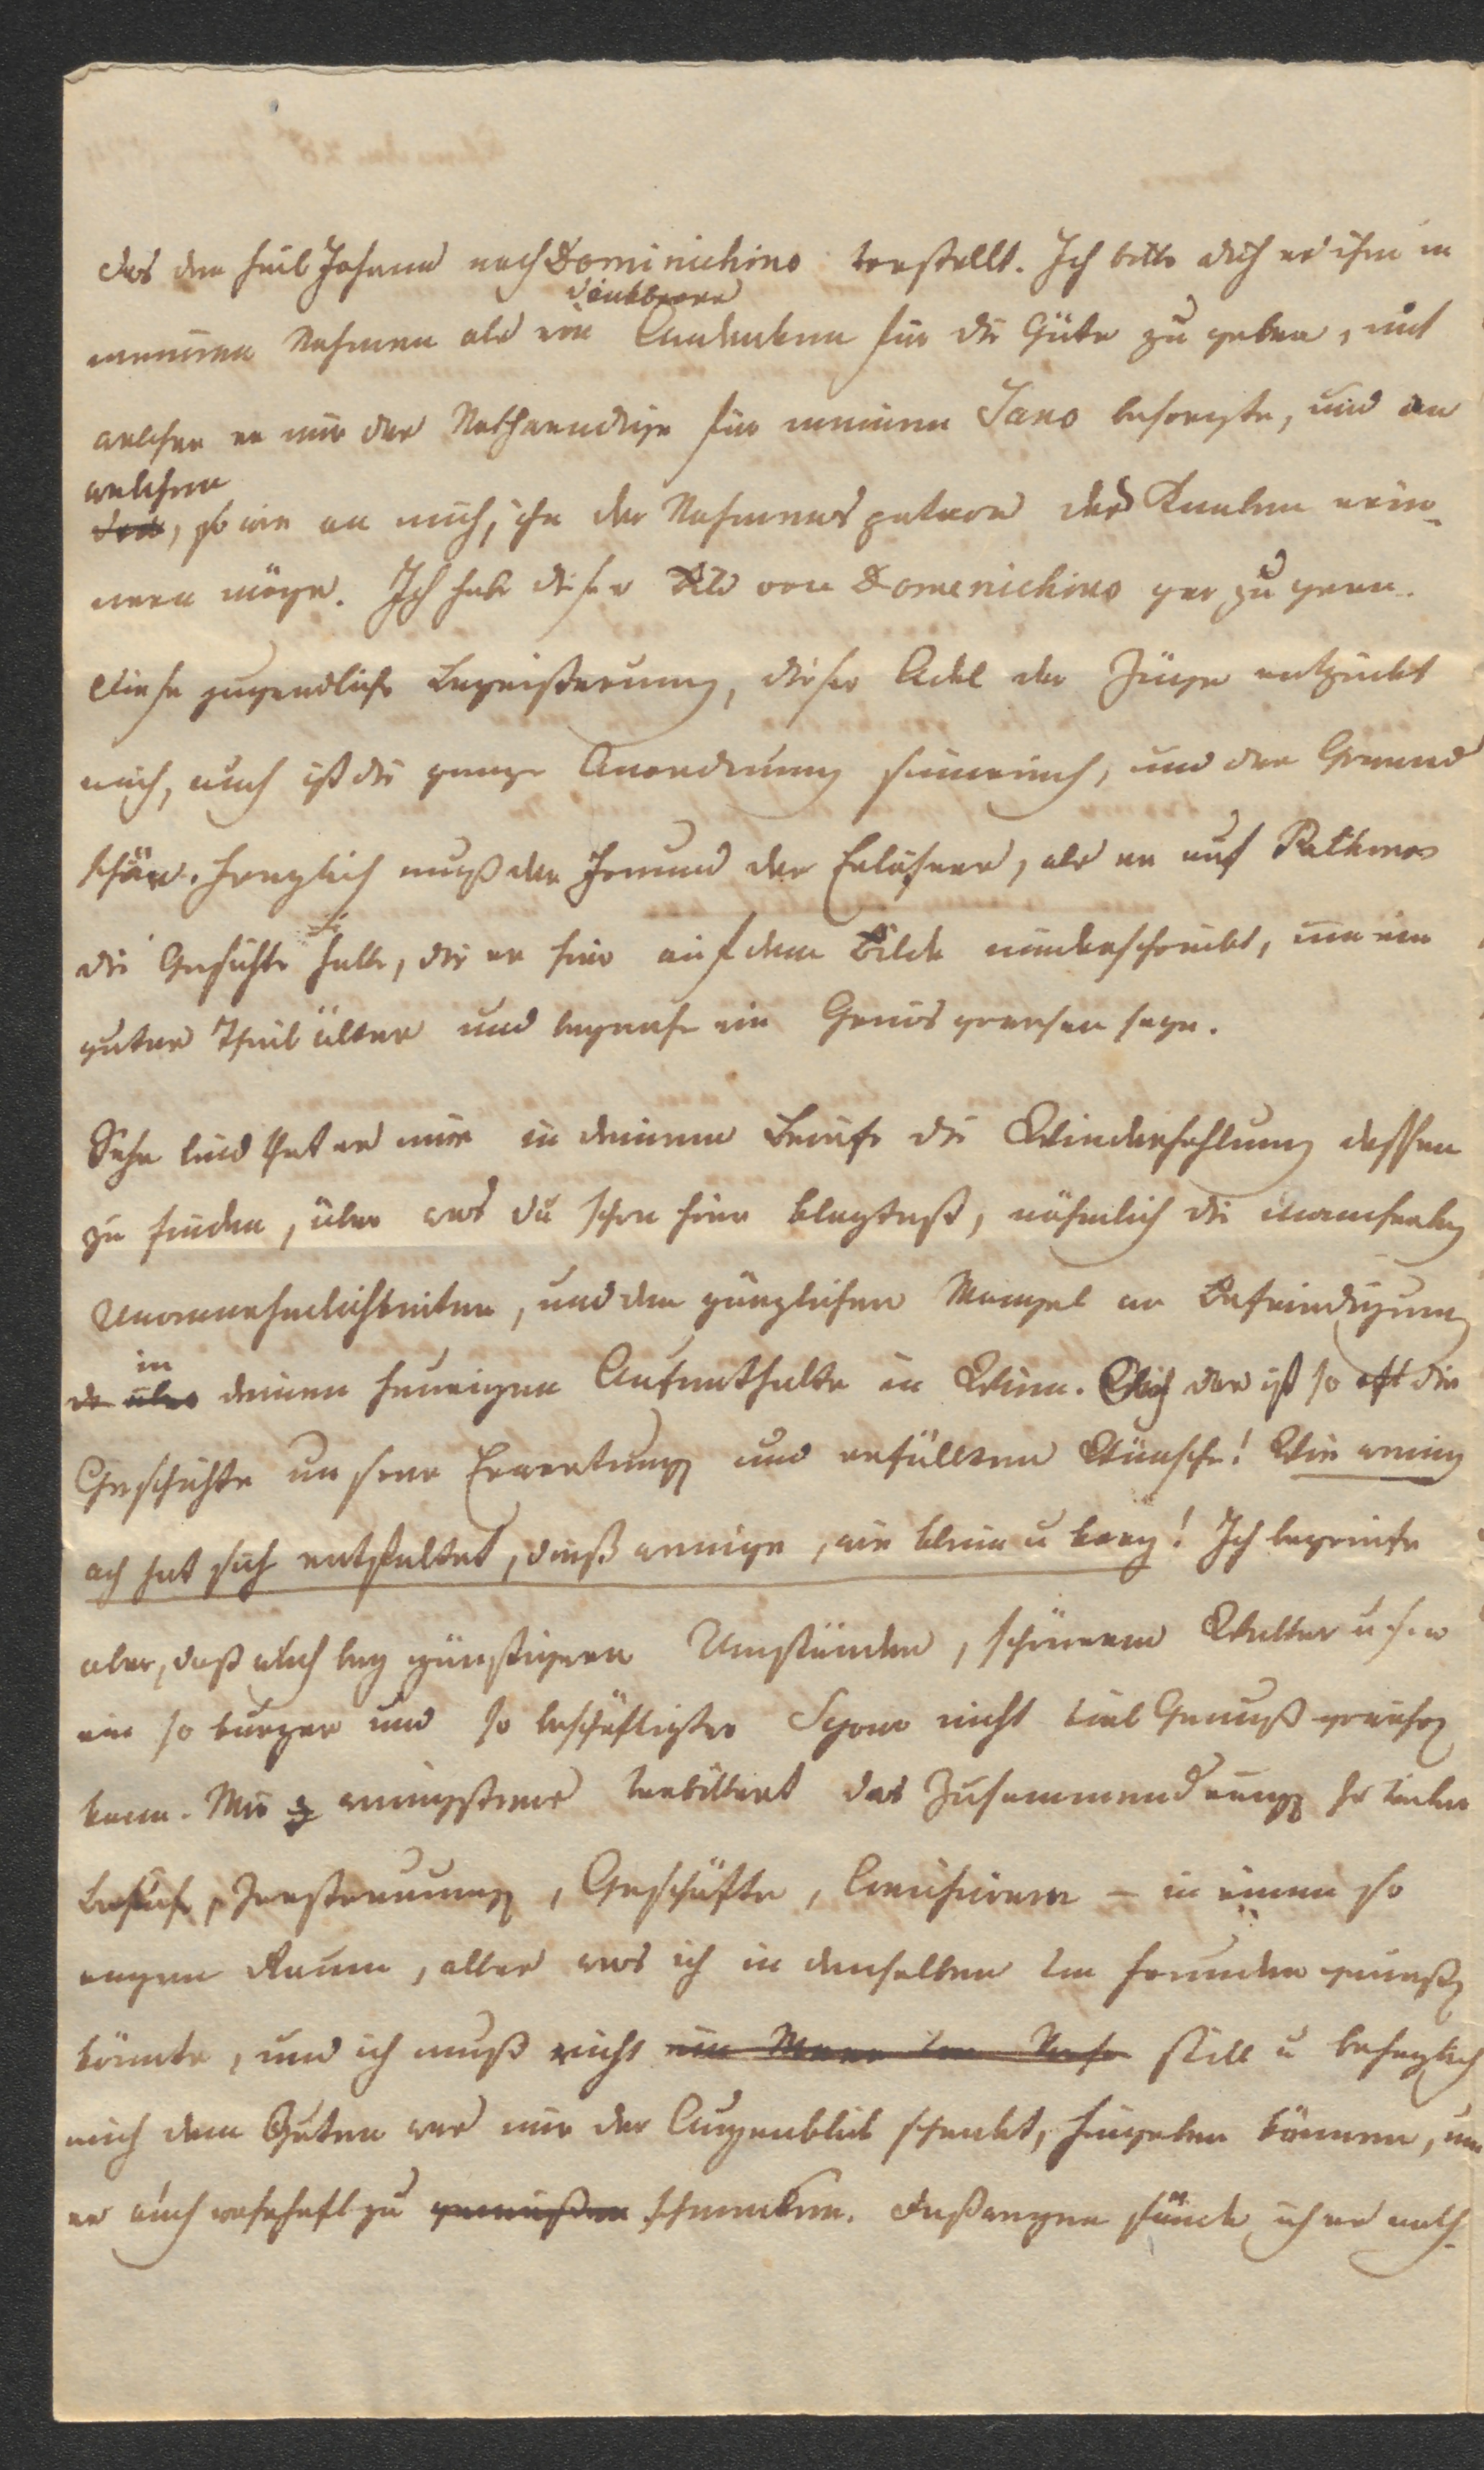 das den heil Johann nach Dominichino vorstellt. Ich bitte dich es ihm in
dankbares
meinem Nahmen als ein Andenken für die Güte zu geben, mit
welcher er mir das Nothwendige für meinen Jano besorgte, und an
welchen
den, so wie an mich, ihn der Nahmenspatron des Knaben erin-
nern möge. Ich habe dieses Bild von Domenichino gar zu gern.
Diese jugendliche Begeisterung, dieser Adel der Züge entzückt
mich, auch ist die ganze Anordnung sinnreich, und der Grund
schön. Freylich muß der Freund des Erlösers, als er auf Pathmos
die Gesichte hatte, die er hier auf dem Bilde niederschreibt, um ein
guter Theil älter und beynahe ein Greis gewesen seyn.
Sehr leid that es mir in deinem Briefe die Wiederhohlung dessen
zu finden, über was du schon hier klagtest, nähmlich die
Unannehmlichkeiten, und den gänzlichen Mangel an Befriedigung
in
de über deinen heurigen Aufenthalte in Wien. Ach das ist so oft die
Geschichte unserer Erwartung und erfüllten Wünsche! Wie wenig
ach hat sich entfaltet, dieß wenige, wie klein u karg! Ich begreife
aber, daß auch bey günstigeren Umständen, schönerem Wetter u.s.w
ein so kurzer und so beschäftigter Sejour nicht viel Genuß gewähren
kann. Mir z wenigstens verbittert das Zusammendrängen so vieler
Besuche, Zerstreuungen, Geschäfte, – in einen so
engen Raum, alles was ich in demselben von Freuden genießen
könnte, und ich muß nicht still u behaglich
mich dem Guten was mir der Augenblick schenkt, hingeben können, um
es auch wahrhaft zu genießen schmecken. Deßwegen fände ich es auch